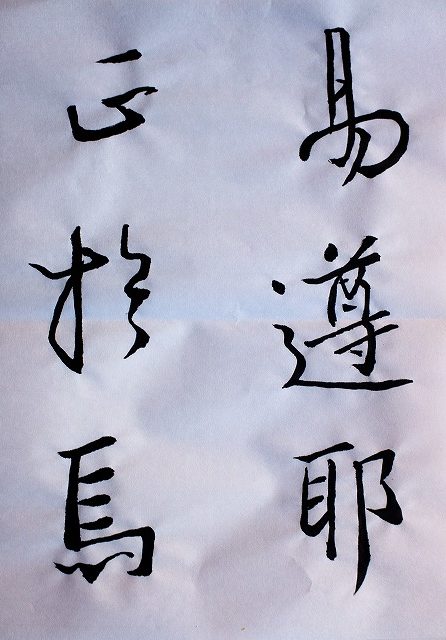 易遵耶
正於焉